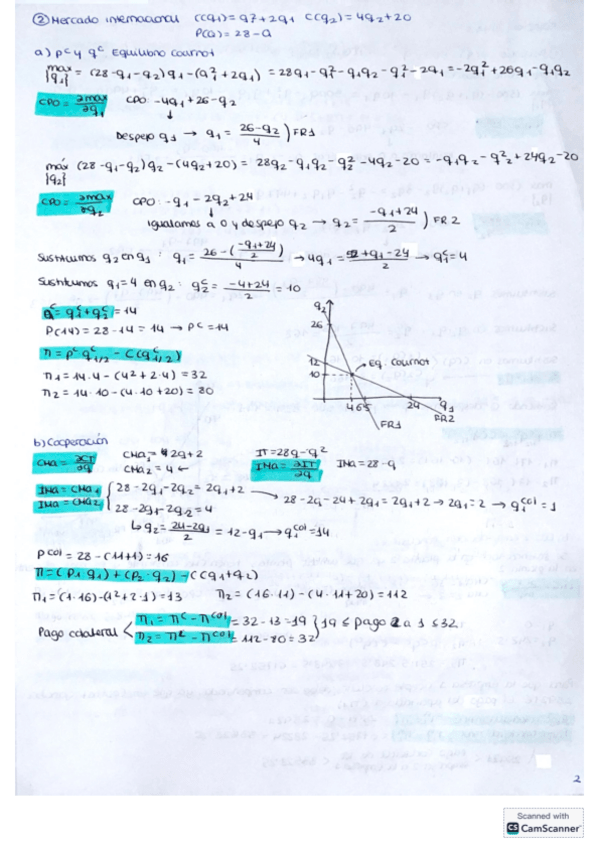 ② Mercado internacional C(q1) = q1² + 2q1 C(q2) = 4q2 + 20
P(Q) = 28 - Q
a) pᶜ y qᶜ Equilibrio Cournot
max {q1} = (28 - q1 - q2) q1 - (q1² + 2q1) = 28q1 - q1² - q1q2 - q1² - 2q1 = -2q1² + 26q1 - q1q2
CPO = ∂max/∂q1 CPO: -4q1 + 26 - q2
Despejo q1 → q1 = (26 - q2)/4 } FR1
máx {q2} (28 - q1 - q2) q2 - (4q2 + 20) = 28q2 - q1q2 - q2² - 4q2 - 20 = -q1q2 - q2² + 24q2 - 20
CPO = ∂max/∂q2 CPO: -q1 - 2q2 + 24
igualamos a 0 y despejo q2 → q2 = (-q1 + 24)/2 ) FR2
Sustituimos q2 en q1: q1 = (26 - ((-q1 + 24)/2))/4 → 4q1 = + q1 - 24/2 → q1ᶜ = 4
Sustituimos q1 = 4 en q2: q2ᶜ = (-4 + 24)/2 = 10
Qᶜ = q1ᶜ + q2ᶜ = 14
P(14) = 28 - 14 = 14 → Pᶜ = 14
π = pᶜ q1/2ᶜ - C(q1/2ᶜ)
π1 = 14 · 4 - (4² + 2 · 4) = 32
π2 = 14 · 10 - (4 · 10 + 20) = 80
q2
26
12
10
Eq. Cournot
4 6,5 24 q1
FR1
FR2
b) Cooperación
CMa = ∂CT/∂q CMa1 = 2q + 2 IT = 28q - q²
CMa2 = 4 IMa = ∂IT/∂q IMa = 28 - q
IMa = CMa1 { 28 - 2q1 - 2q2 = 2q1 + 2 → 28 - 2q1 - 24 + 2q1 = 2q1 + 2 → 2q1 = 2 → q1ᶜᵒˡ = 1
IMa = CMa2 28 - 2q1 - 2q2 = 4
↳ q2 = (24 - 2q1)/2 = 12 - q1 → q1ᶜᵒˡ = 14
Pᶜᵒˡ = 28 - (11 + 1) = 16
π = (P1 · q1) + (P2 · q2) - C(q1 + q2)
π1 = (1 · 16) - (1² + 2 · 1) = 13 π2 = (16 · 11) - (4 · 11 + 20) = 112
Pago colateral < π1 = πᶜ - πᶜᵒˡ = 32 - 13 = 19 } 19 ≤ pago 2 a 1 ≤ 32
π2 = πᶜ - πᶜᵒˡ = 112 - 80 = 32
2
Scanned with
CS CamScanner